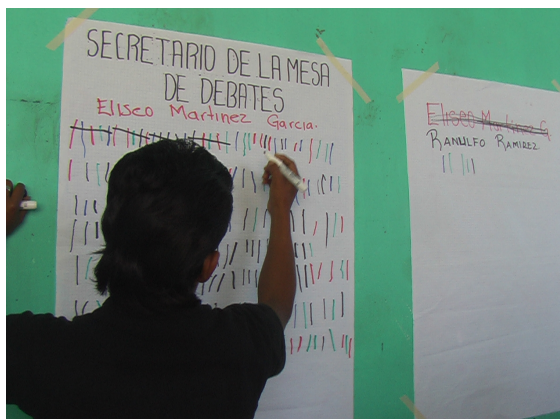 SECRETARIO DE LA MESA
DE DEBATES
Eliseo Martinez Garcia.
Eliseo Martinez G
RANULFO RAMIREZ